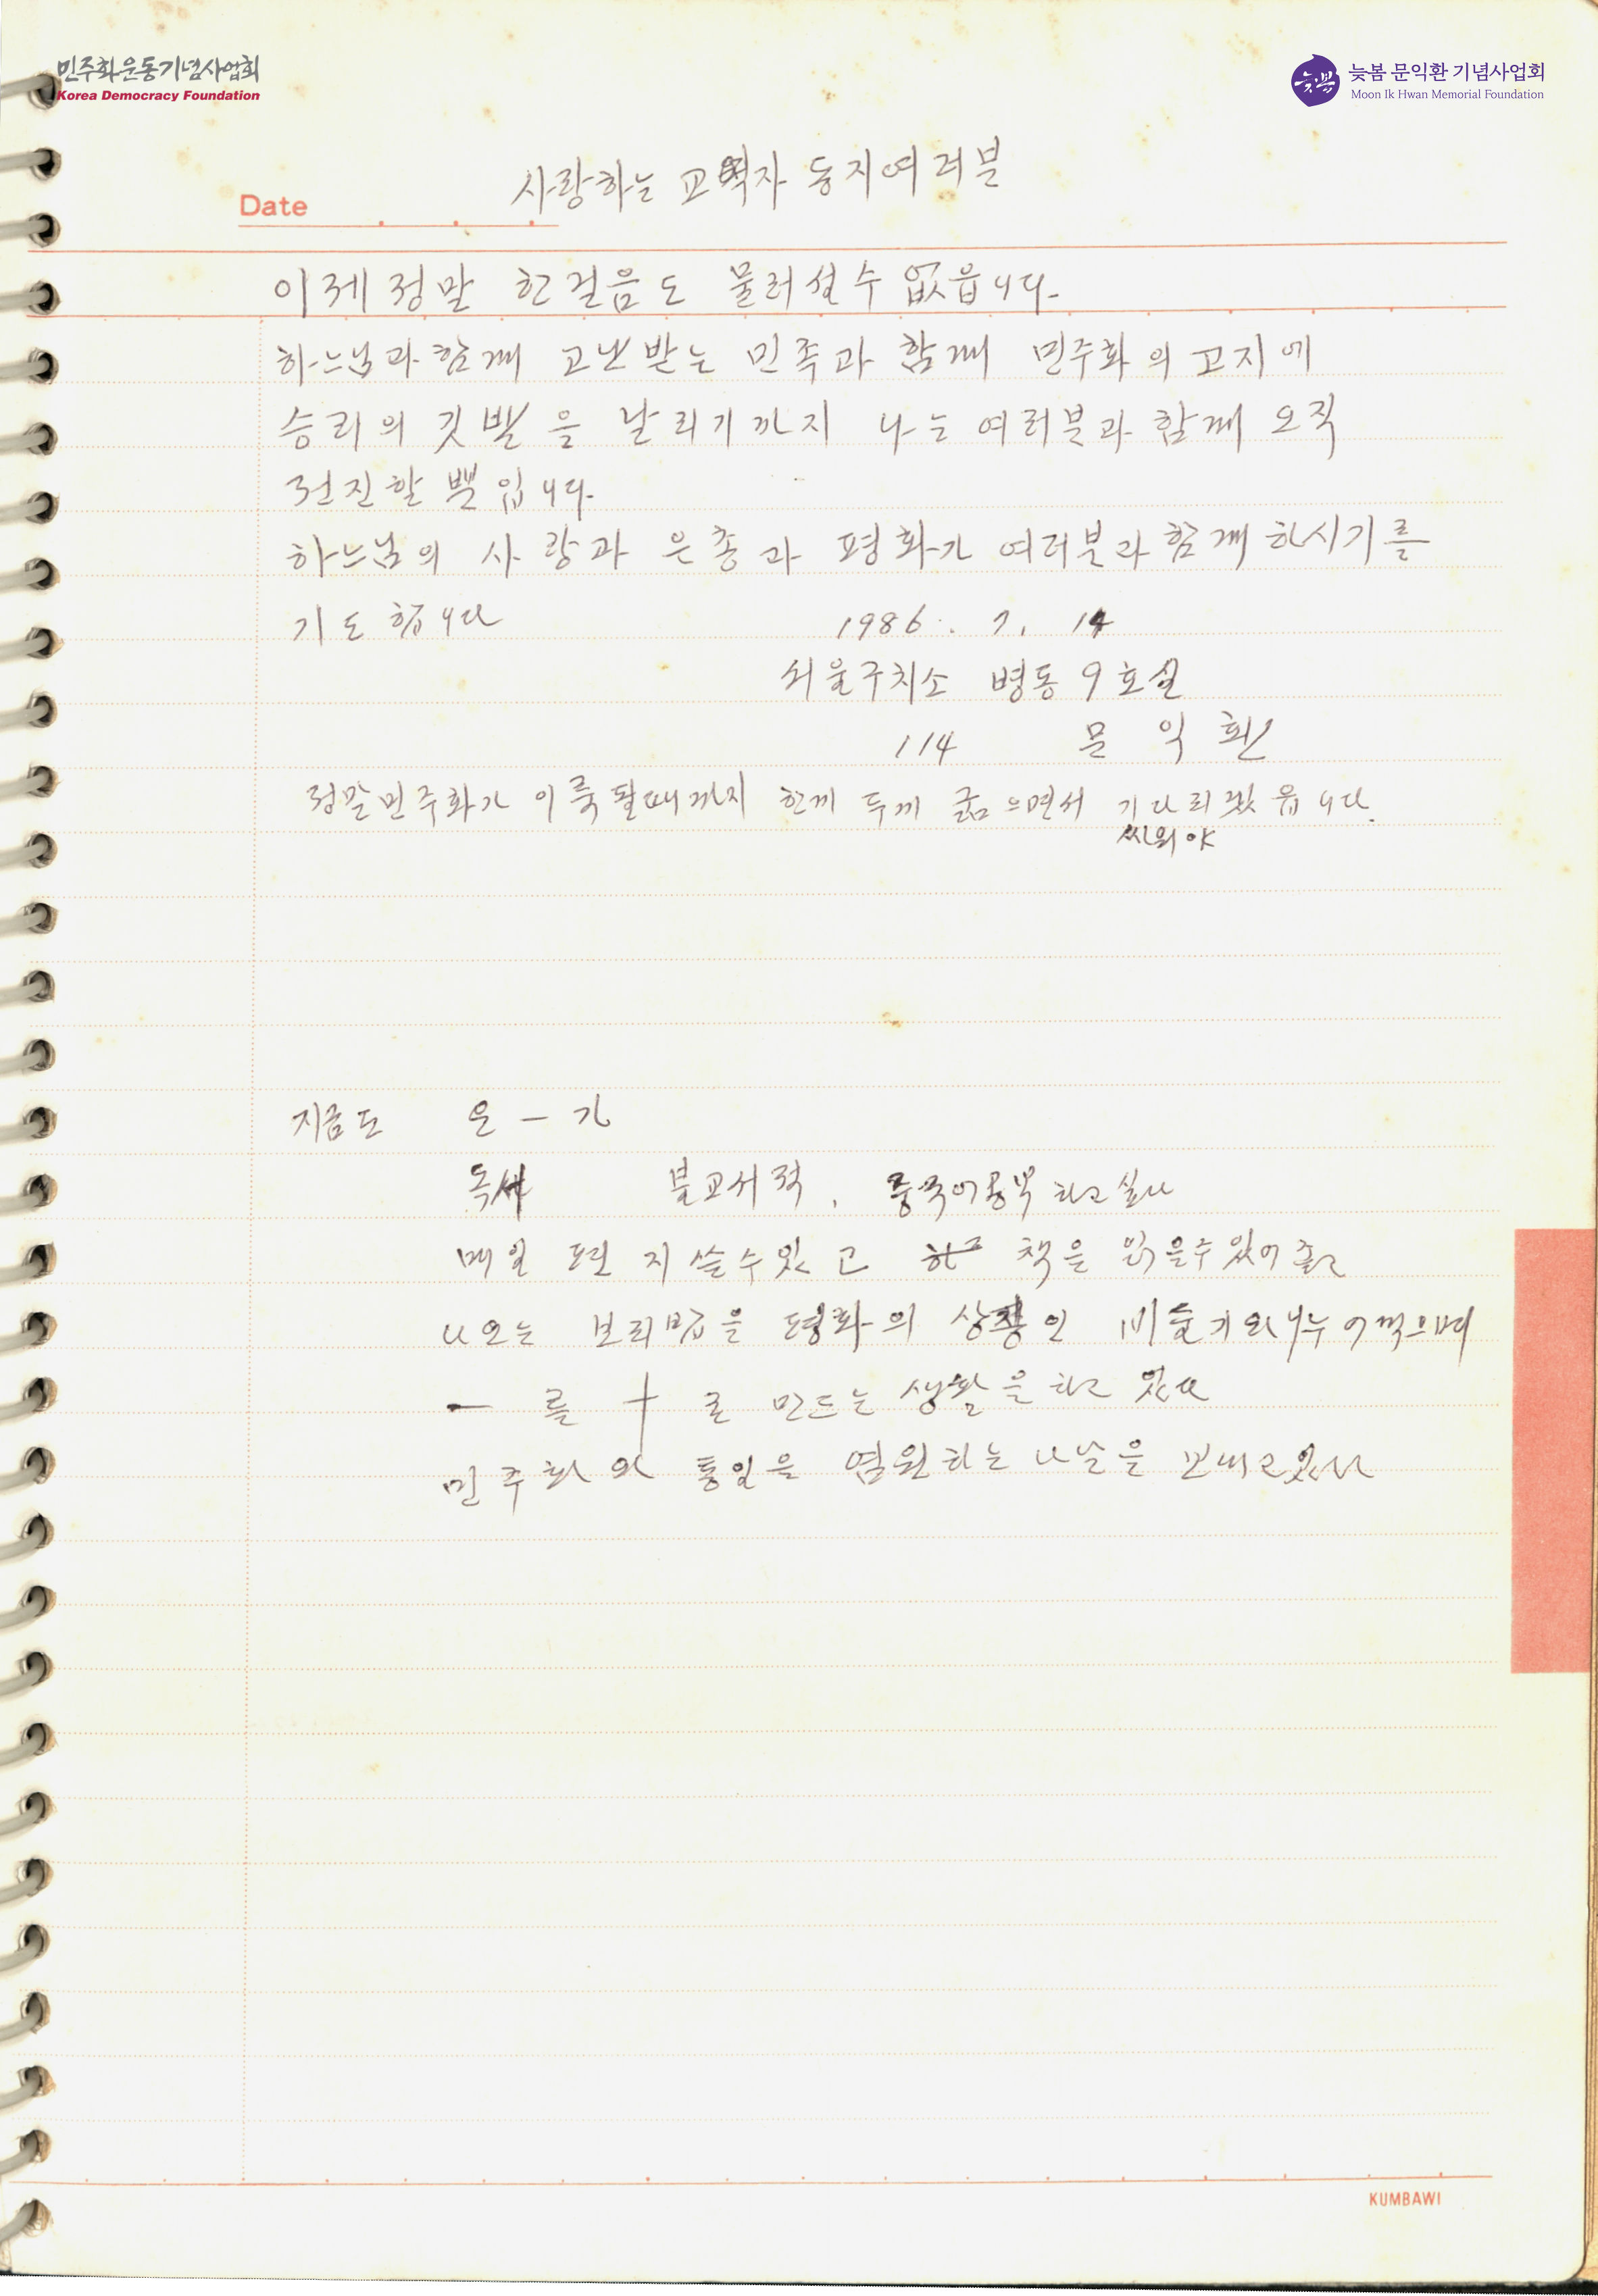 민주화운동기념사업회
Korea Democracy Foundation
늦봄 문익환 기념사업회
Moon Ik Hwan Memorial Foundation
늦봄
사랑하는 교역자 동지여러분
Date
이제 정말 한걸음도 물러설수 없읍니다.
하느님과 함께 고난받는 민족과 함께 민주화의 고지에
승리의 깃발을 날리기까지 나는 여러분과 함께 오직
전진할 뿐입니다.
하느님의 사랑과 은총과 평화가 여러분과 함께 하시기를
기도합니다
1986. 7. 14
서울구치소 병동 9호실
114 문익환
정말 민주화가 이룩될때까지 한끼 두끼 굶으면서 기다리겠읍니다.
씨외야
지금도 온 - 가
독서 불교서적, 중국어공부하고 싶다
매일 편지 쓸수있고 책을 읽을수 있어 좋고
나오는 보리밥을 평화의 상징인 비둘기와 나누어 먹으며
一 를 十 로 만드는 생활을 하고 있다
민주화와 통일을 염원하는 나날을 보내고있다
KUMBAWI